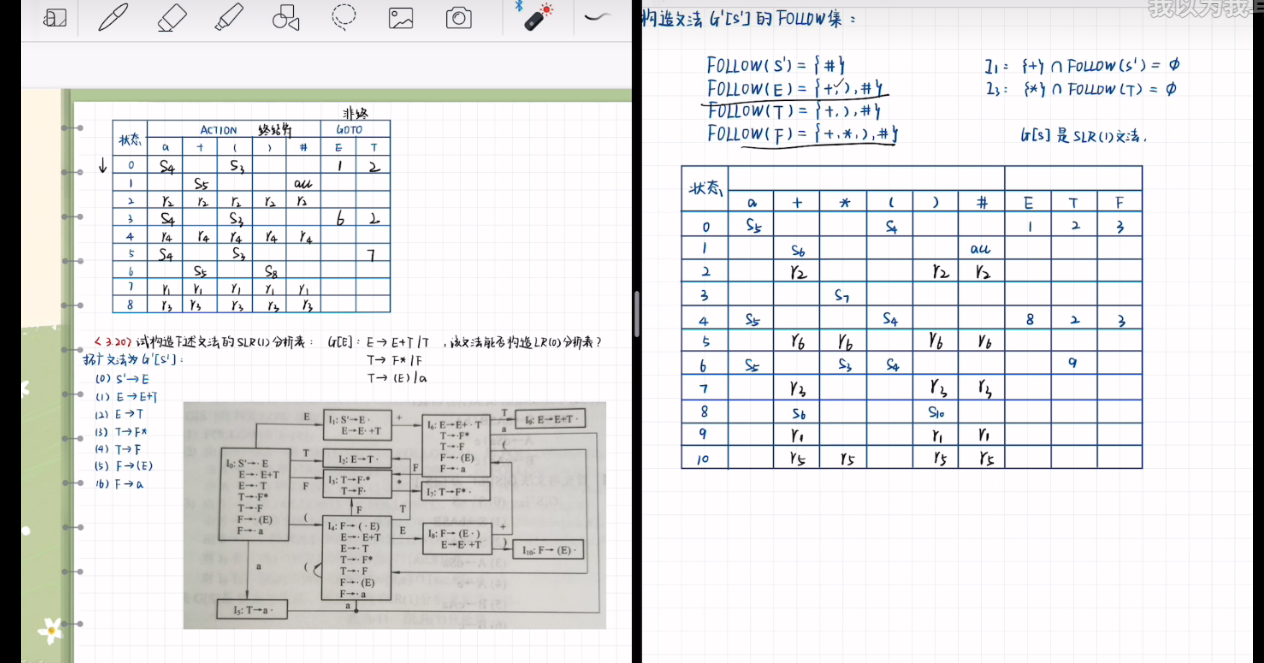 非终
状态 ACTION 终结符 GOTO
a + ( ) # E T
0 S4 S3 1 2
1 S5 acc
2 r2 r2 r2 r2 r2
3 S4 S3 6 2
4 r4 r4 r4 r4 r4
5 S4 S3 7
6 S5 S8
7 r1 r1 r1 r1 r1
8 r3 r3 r3 r3 r3
<3.20> 试构造下述文法的SLR(1)分析表: G[E]: E→E+T|T ,该文法能否构造LR(0)分析表?
T→F*|F
T→(E)|a
拓广文法为G'[S']:
(0) S'→E
(1) E→E+T
(2) E→T
(3) T→F*
(4) T→F
(5) F→(E)
(6) F→a
I0: S'→·E
E→·E+T
E→·T
T→·F*
T→·F
F→·(E)
F→·a
E
I1: S'→E·
E→E·+T
+
I6: E→E+·T
T→·F*
T→·F
F→·(E)
F→·a
T
I9: E→E+T·
a
(
T
I2: E→T·
F
I3: T→F·*
T→F·
F
*
I7: T→F*·
F
T
(
I4: F→(·E)
E→·E+T
E→·T
T→·F*
T→·F
F→·(E)
F→·a
E
I8: F→(E·)
E→E·+T
+
)
I10: F→(E)·
(
a
I5: T→a·
a
我以为我
构造文法G'[S']的FOLLOW集:
FOLLOW(S') = {#}
FOLLOW(E) = {+,),#}
FOLLOW(T) = {+,),#}
FOLLOW(F) = {+,*,),#}
I1: {+} ∩ FOLLOW(S') = ∅
I3: {*} ∩ FOLLOW(T) = ∅
G[S]是SLR(1)文法.
状态 a + * ( ) # E T F
0 S5 S4 1 2 3
1 S6 acc
2 r2 r2 r2
3 S7
4 S5 S4 8 2 3
5 r6 r6 r6 r6
6 S5 S3 S4 9
7 r3 r3 r3
8 S6 S10
9 r1 r1 r1
10 r5 r5 r5 r5